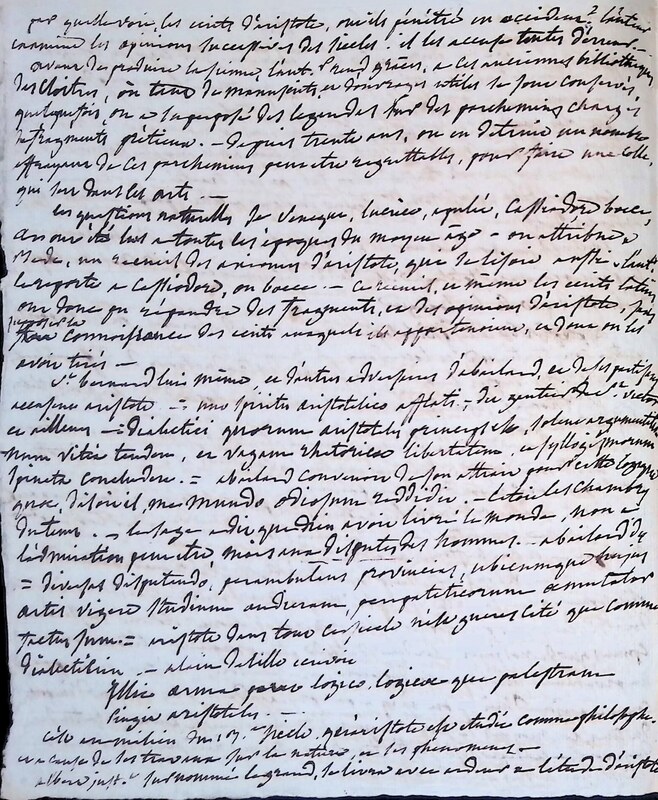 par quelle voie, les écrits d'aristote, ont-ils pénétré en occident? l'auteur
examine les opinions successives des siècles. il les accuse toutes d'erreur. —
avant de produire la sienne, l'aut. rend grâces, a ces anciennes bibliothèques
des cloîtres, où tant de manuscrits, et d'ouvrages utiles se sont conservés
quelquefois, on a superposé des legendes sur des parchemins chargés
de fragments précieux. — depuis trente ans, on en détruit un nombre
effrayant de ces parchemins peut etre regrettables, pour faire une colle,
qui sert dans les arts. —
les questions naturelles de Seneque, lucrèce, apulée, Cassiodore boece,
ont été lus a toutes les époques du moyen âge — on attribue a
Bede, un recueil des axiomes d'aristote, que l'aut.
le reporte a cassiodore, ou boece. — ce recueil, et même les écrits latins
ont donc pu répandre des fragments, et des opinions d'aristote, sans
connoissance des écrits auxquels ils appartenoient, et dont on les
avoit tirés —
St. bernard lui même, et d'autres adversaires d'abailard, et de ses partisans
accusent aristote. — uno spiritu aristotelico afflati. —
et ailleurs — dialectici quorum aristoteles princeps est, solent argumentationum
retia tendere, et vagam rhetoricæ libertatem, in syllogismorum
spineta concludere. = abailard convenoit de son attrait pour cette logique
quæ, disoit il, me mundo odiosum reddidit. —
du tems. — le sage a dit que dieu avoit livré le monde, non a
l'admiration peut etre mais aux disputes des hommes. — abailard dit
= diversas disputando, perambulans provincias, ubicumque hujus
artis vigere studium audieram, peripateticorum æmulator
factus sum. = aristote dans tout ce siècle n'est gueres cité que comme
dialecticien. — alain de lille écrivoit
Illic arma parat logico, logicæ que palestram
pingit aristoteles. —
c'est au milieu du 13.e siècle, qu'aristote est étudié comme philosophe.
et a cause de ses travaux sur la nature, et les phenomenes —
albert surnommé le grand, se livra avec ardeur a l'étude d'aristote